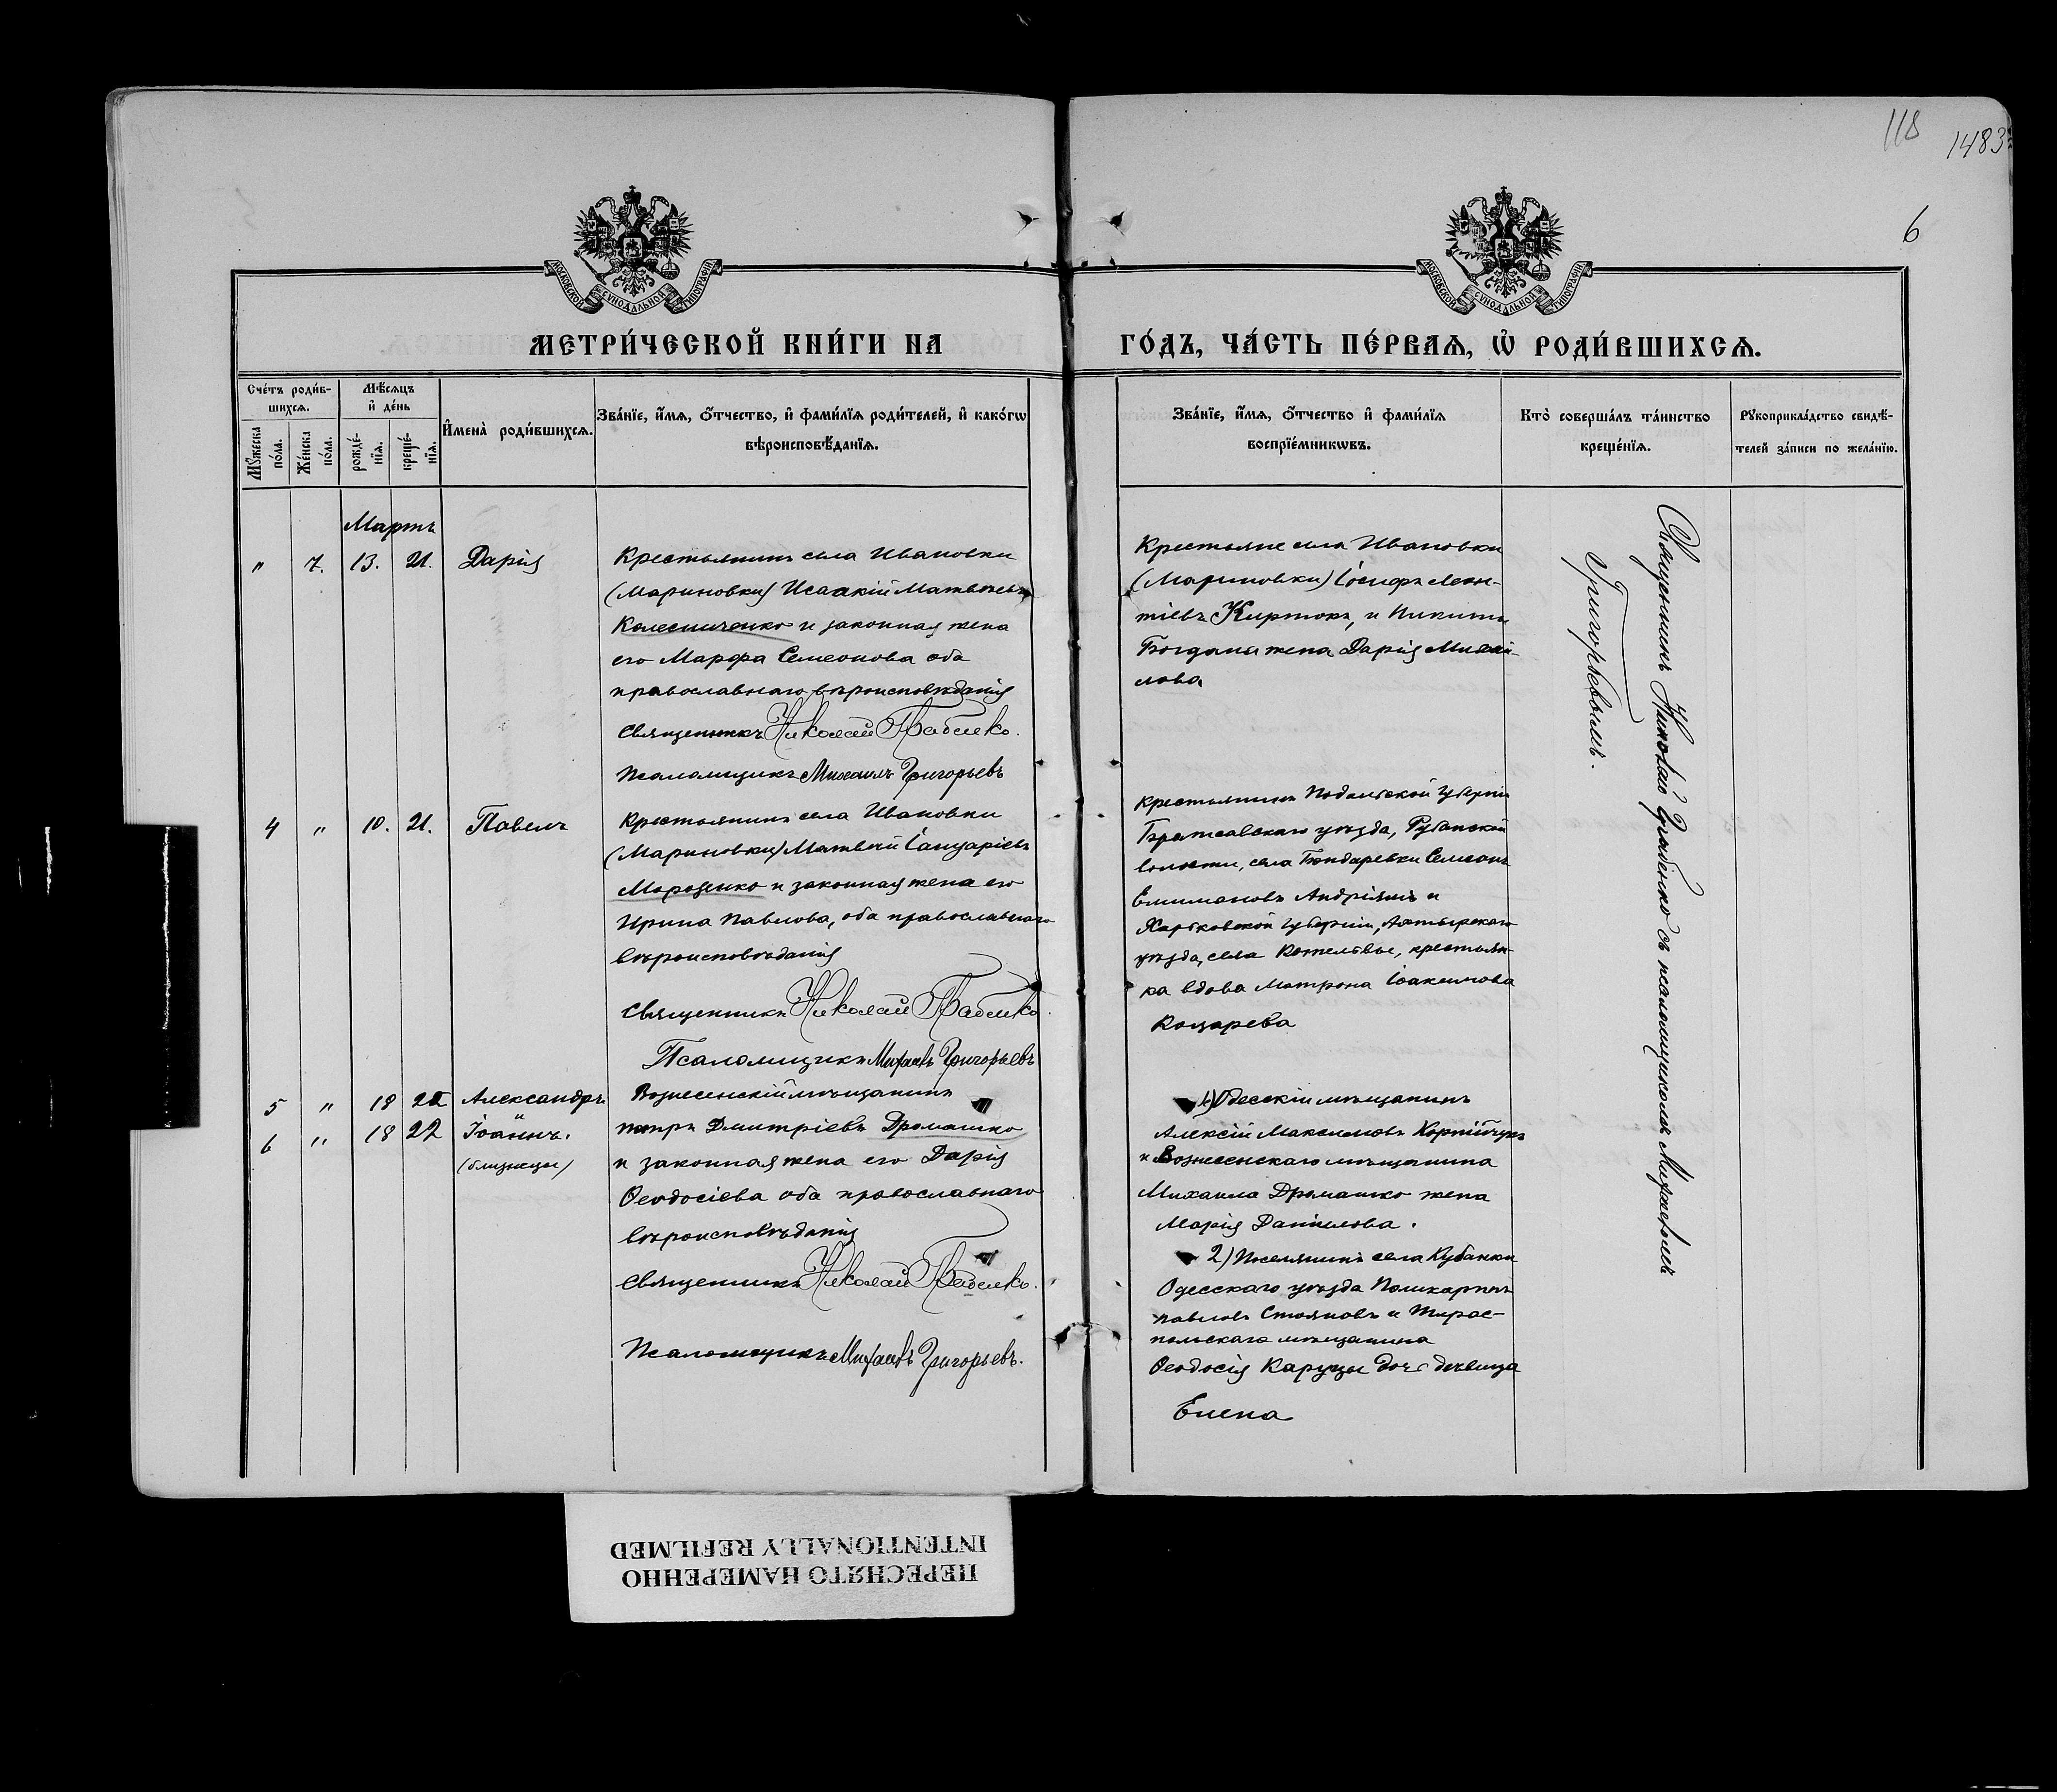 118
1483
6
МОСКОВСКОЙ СѴНОДАЛЬНОЙ ТИПОГРАФІИ
МОСКОВСКОЙ СѴНОДАЛЬНОЙ ТИПОГРАФІИ
МЕТРИ́ЧЕСКОЙ КНИ́ГИ НА
ГО́ДЪ, ЧА́СТЬ ПЕ́РВАѦ, Ѽ РОДИ́ВШИХСѦ.
Сче́тъ роди́в-
шихсѧ.
Мѣ́сѧцъ
и҆ де́нь
Мꙋ́жеска по́ла.
Же́нска по́ла.
рожде́-
нїѧ.
креще́-
нїѧ.
И҆мена̀ роди́вшихсѧ.
Зва́нїе, и҆́мѧ, ѻ҆́тчество, и҆ фами́лїѧ роди́телей, и҆ како́гѡ
вѣроисповѣ́данїѧ.
Зва́нїе, и҆́мѧ, ѻ҆́тчество и҆ фами́лїѧ
воспрїе́мникѡвъ.
Кто̀ соверша́лъ та́инство
креще́нїѧ.
Рꙋкоприкла́дство свидѣ́-
телей за́писи по жела́нїю.
Мартъ
" 7. 13. 21. Дарія
Крестьянинъ села Ивановки
(Мариновки) Исаакій Матвѣевъ
Колесниченко и законная жена
его Марѳа Семеонова оба
православнаго вѣроисповѣданія
Священникъ Николай
Псаломщикъ Михаилъ Григорьевъ
Крестьяне села Ивановки
(Мариновки) Іосифъ Леон-
тіевъ Киртокъ, и Никиты
Богданы жена Дарія Михай-
лова
4 " 10. 21. Павелъ
Крестьянинъ села Ивановки
(Мариновки) Матвѣй Іануаріевъ
Морозенко и законная жена его
Ирина Павлова, оба православнаго
вѣроисповѣданія
Священникъ Николай
Псаломщикъ Михаилъ Григорьевъ
Крестьянинъ Подольской губерніи
Брацлавскаго уѣзда, Рубанской
волости, села Бондаревки Семеонъ
и
Харьковской губерніи, Ахтырскаго
уѣзда, села Котельвы, крестьян-
ка вдова Матрона Іоакимова
Козарева
5 " 18 22 Александръ
6 " 18 22 Іоаннъ.
(близнецы)
Вознесенскій мѣщанинъ
Петръ Дмитріевъ Дромашко
и законная жена его Дарія
Ѳеодосіева оба православнаго
вѣроисповѣданія
Священникъ Николай
Псаломщикъ Михаилъ Григорьевъ.
1) Одесскій мѣщанинъ
Алексій Максимовъ Корнійчукъ
и Вознесенскаго мѣщанина
Михаила Дромашко жена
Марія Даніилова.
2) Поселянинъ села Кубанки
Одесскаго уѣзда Поликарпъ
Павловъ Стояновъ и Тирас-
польскаго мѣщанина
Ѳеодосія Каруцы дочь дѣвица
Елена
Священникъ Николай съ псаломщикомъ Михаиломъ
Григорьевымъ.
ПЕРЕСНЯТО НАМЕРЕННО
INTENTIONALLY REFILMED